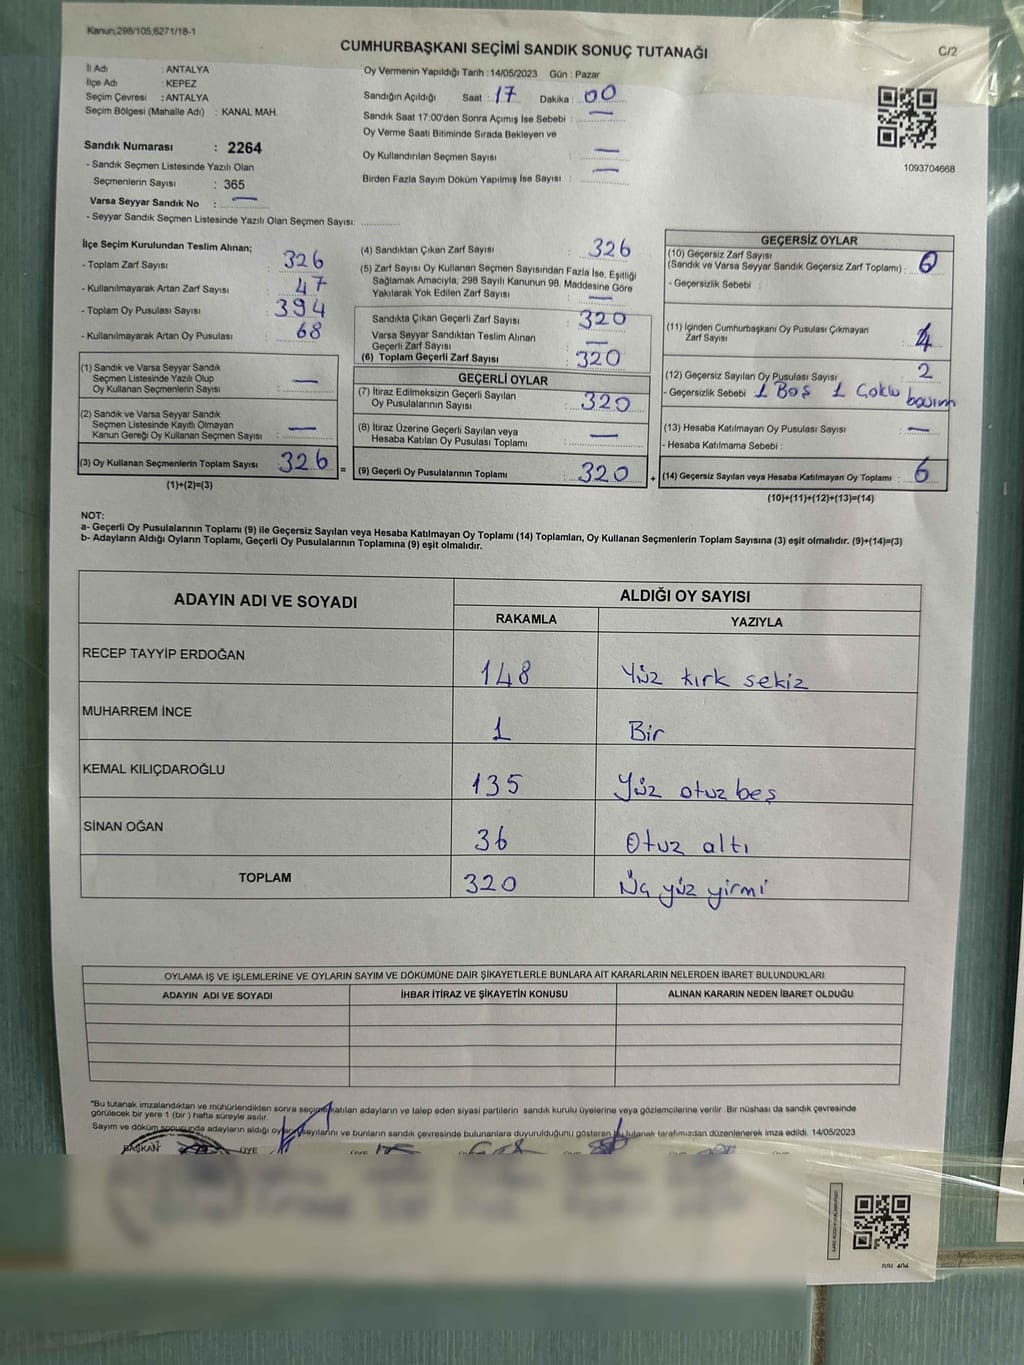 Kanun,298/105,6271/18-1
CUMHURBAŞKANI SEÇİMİ SANDIK SONUÇ TUTANAĞI
C/2
İl Adı : ANTALYA
İlçe Adı : KEPEZ
Seçim Çevresi : ANTALYA
Seçim Bölgesi (Mahalle Adı) : KANAL MAH.
Sandık Numarası : 2264
- Sandık Seçmen Listesinde Yazılı Olan
Seçmenlerin Sayısı : 365
Varsa Seyyar Sandık No : —
- Seyyar Sandık Seçmen Listesinde Yazılı Olan Seçmen Sayısı: ............
Oy Vermenin Yapıldığı Tarih : 14/05/2023 Gün : Pazar
Sandığın Açıldığı Saat : 17 Dakika : 00
Sandık Saat 17:00'den Sonra Açımış İse Sebebi : —
Oy Verme Saati Bitiminde Sırada Bekleyen ve
Oy Kullandırılan Seçmen Sayısı : —
Birden Fazla Sayım Döküm Yapılmış İse Sayısı : —
1093704668
İlçe Seçim Kurulundan Teslim Alınan;
- Toplam Zarf Sayısı : 326
- Kullanılmayarak Artan Zarf Sayısı : 47
- Toplam Oy Pusulası Sayısı : 394
- Kullanılmayarak Artan Oy Pusulası : 68
(1) Sandık ve Varsa Seyyar Sandık
Seçmen Listesinde Yazılı Olup
Oy Kullanan Seçmenlerin Sayısı : —
(2) Sandık ve Varsa Seyyar Sandık
Seçmen Listesinde Kayıtlı Olmayan
Kanun Gereği Oy Kullanan Seçmen Sayısı : —
(3) Oy Kullanan Seçmenlerin Toplam Sayısı : 326
(1)+(2)=(3)
=
(4) Sandıktan Çıkan Zarf Sayısı : 326
(5) Zarf Sayısı Oy Kullanan Seçmen Sayısından Fazla İse, Eşitliği
Sağlamak Amacıyla, 298 Sayılı Kanunun 98. Maddesine Göre
Yakılarak Yok Edilen Zarf Sayısı : —
Sandıkta Çıkan Geçerli Zarf Sayısı : 320
Varsa Seyyar Sandıktan Teslim Alınan
Geçerli Zarf Sayısı : —
(6) Toplam Geçerli Zarf Sayısı : 320
GEÇERLİ OYLAR
(7) İtiraz Edilmeksizin Geçerli Sayılan
Oy Pusulalarının Sayısı : 320
(8) İtiraz Üzerine Geçerli Sayılan veya
Hesaba Katılan Oy Pusulası Toplamı : —
(9) Geçerli Oy Pusulalarının Toplamı : 320
+
GEÇERSİZ OYLAR
(10) Geçersiz Zarf Sayısı
(Sandık ve Varsa Seyyar Sandık Geçersiz Zarf Toplamı) : 0
- Geçersizlik Sebebi :
(11) İçinden Cumhurbaşkanı Oy Pusulası Çıkmayan
Zarf Sayısı : 4
(12) Geçersiz Sayılan Oy Pusulası Sayısı : 2
- Geçersizlik Sebebi 1 Boş 1 Çoklu basım
(13) Hesaba Katılmayan Oy Pusulası Sayısı : —
- Hesaba Katılmama Sebebi :
(14) Geçersiz Sayılan veya Hesaba Katılmayan Oy Toplamı : 6
(10)+(11)+(12)+(13)=(14)
NOT:
a- Geçerli Oy Pusulalarının Toplamı (9) ile Geçersiz Sayılan veya Hesaba Katılmayan Oy Toplamı (14) Toplamları, Oy Kullanan Seçmenlerin Toplam Sayısına (3) eşit olmalıdır. (9)+(14)=(3)
b- Adayların Aldığı Oyların Toplamı, Geçerli Oy Pusulalarının Toplamına (9) eşit olmalıdır.
ADAYIN ADI VE SOYADI
ALDIĞI OY SAYISI
RAKAMLA YAZIYLA
RECEP TAYYİP ERDOĞAN 148 Yüz kırk sekiz
MUHARREM İNCE 1 Bir
KEMAL KILIÇDAROĞLU 135 Yüz otuz beş
SİNAN OĞAN 36 Otuz altı
TOPLAM 320 Üç yüz yirmi
OYLAMA İŞ VE İŞLEMLERİNE VE OYLARIN SAYIM VE DÖKÜMÜNE DAİR ŞİKAYETLERLE BUNLARA AİT KARARLARIN NELERDEN İBARET BULUNDUKLARI
ADAYIN ADI VE SOYADI İHBAR İTİRAZ VE ŞİKAYETİN KONUSU ALINAN KARARIN NEDEN İBARET OLDUĞU
*Bu tutanak imzalandıktan ve mühürlendikten sonra seçime katılan adayların ve talep eden siyasi partilerin sandık kurulu üyelerine veya gözlemcilerine verilir. Bir nüshası da sandık çevresinde
görülecek bir yere 1 (bir ) hafta süreyle asılır.
Sayım ve döküm sonucunda adayların aldığı oyların sayılarını ve bunların sandık çevresinde bulunanlara duyurulduğunu gösteren bu tutanak tarafımızdan düzenlenerek imza edildi. 14/05/2023
BAŞKAN ÜYE